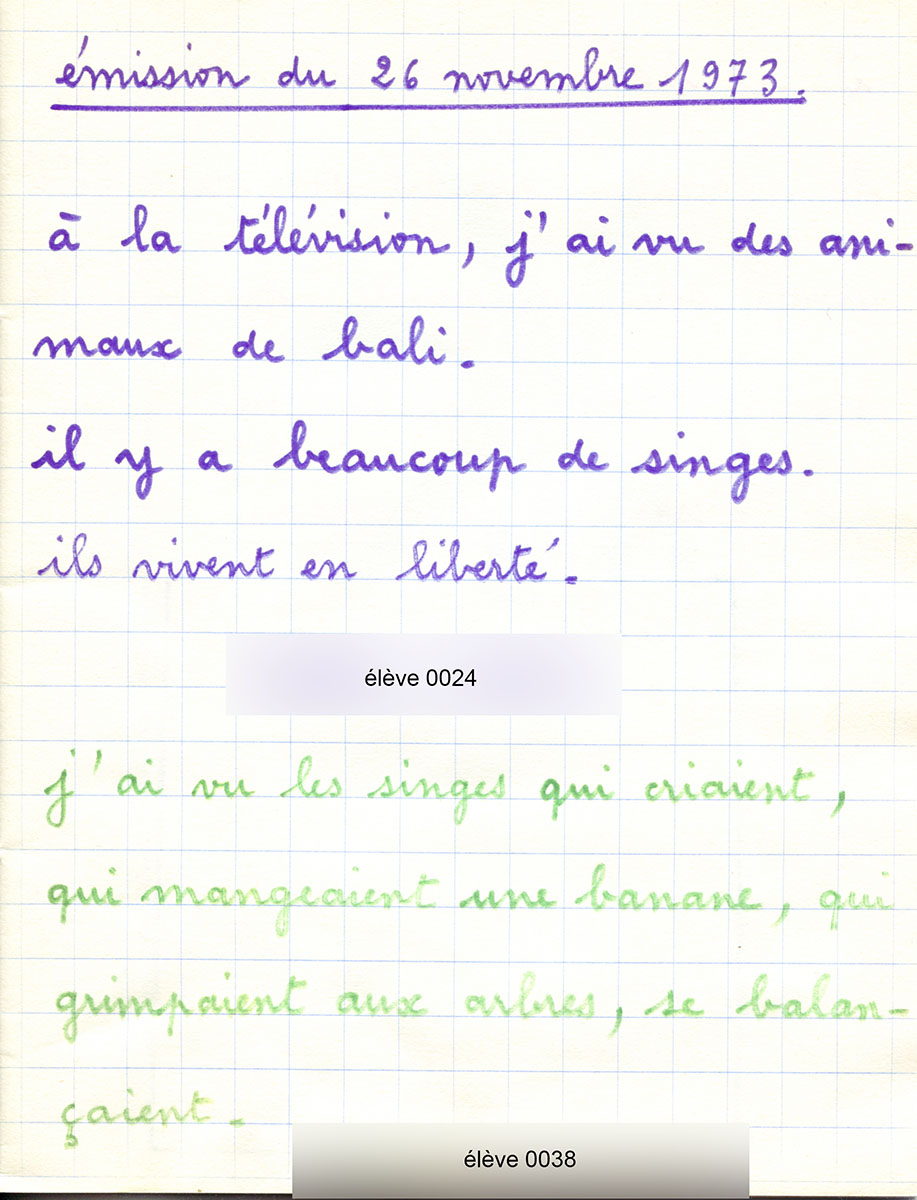 émission du 26 novembre 1973.
à la télévision, j'ai vu des ani-
maux de bali.
il y a beaucoup de singes.
ils vivent en liberté.
élève 0024
j'ai vu les singes qui criaient,
qui mangeaient une banane, qui
grimpaient aux arbres, se balan-
çaient.
élève 0038